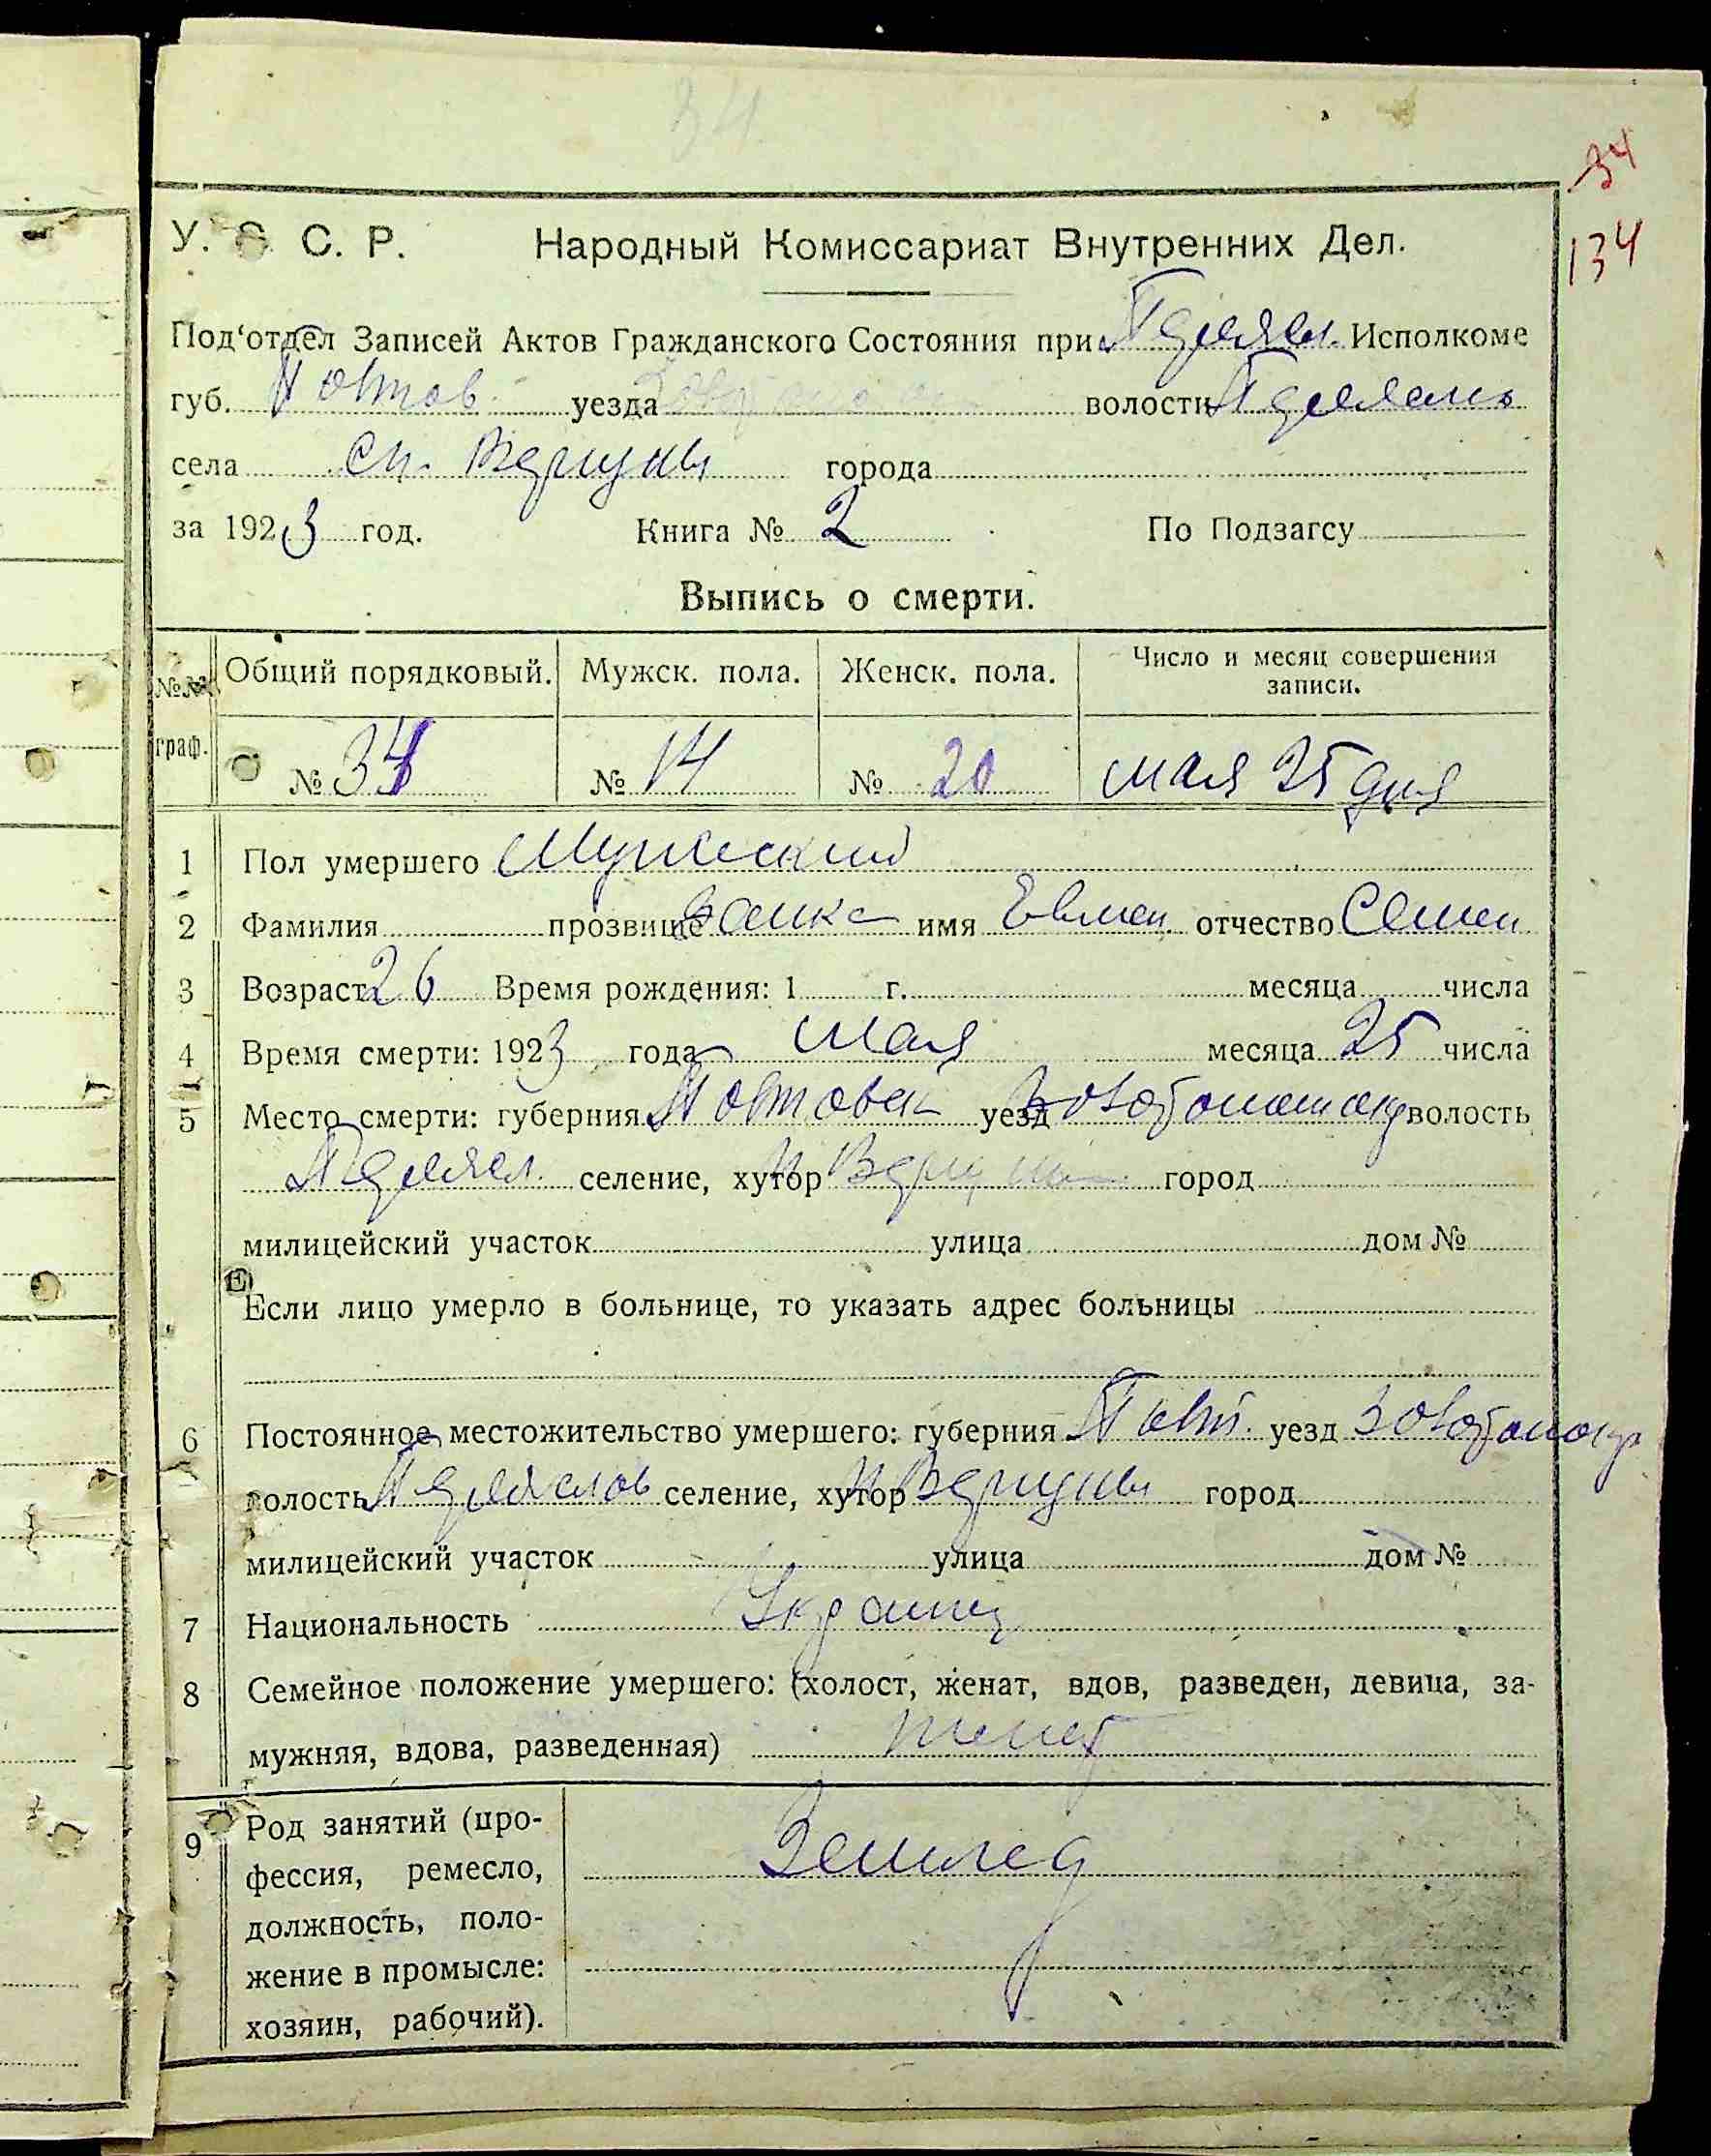 34
34
134
У. С. С. Р. Народный Комиссариат Внутренних Дел.
Под‘отдел Записей Актов Гражданского Состояния при Исполкоме
губ. Полтов. уезда волости
села с. Вергуны города
за 1923 год. Книга № 2 По Подзагсу
Выпись о смерти.
№№ граф. Общий порядковый. Мужск. пола. Женск. пола. Число и месяц совершения записи.
№ 34 № 14 № 20 мая 25 дня
1 Пол умершего Мужеский
2 Фамилия прозвище Заика имя Евмен отчество Семен
3 Возраст 26 Время рождения: 1 г. месяца числа
4 Время смерти: 1923 года мая месяца 25 числа
5 Место смерти: губерния Полтовск уезд волость
селение, хутор Вергуны город
милицейский участок улица дом №
Если лицо умерло в больнице, то указать адрес больницы
6 Постоянное местожительство умершего: губерния Полт. уезд
волость селение, хутор Вергуны город
милицейский участок улица дом №
7 Национальность Украинц
8 Семейное положение умершего: (холост, женат, вдов, разведен, девица, за-
мужняя, вдова, разведенная) женат
9 Род занятий (про-
фессия, ремесло, Землед
должность, поло-
жение в промысле:
хозяин, рабочий).